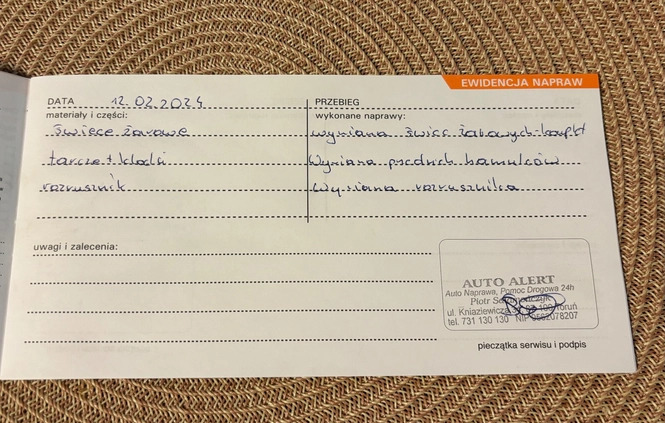 EWIDENCJA NAPRAW
DATA 12.02.2024 PRZEBIEG
materiały i części: wykonane naprawy:
świece żarowe wymiana świec żarowych-komplet
tarcze + klocki Wymiana przednich hamulców
rozrusznik Wymiana rozrusznika
uwagi i zalecenia:
AUTO ALERT
Auto Naprawa, Pomoc Drogowa 24h
Piotr
ul. Kniaziewicza Toruń
tel. 731 130 130 NIP
pieczątka serwisu i podpis